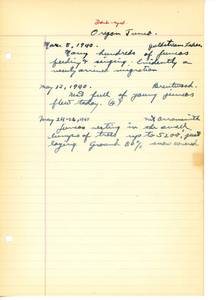 Dark-eyed
Oregon Junco.
Mar. 5, 1940. Goldstream Lakes
Many hundreds of juncos
feeding & singing. Evidently a
newly arrived migration
May 12, 1940. Brentwood.
Nest full of young juncos
flew today.
May 24-26, 1941 Mt Arrowsmith
Juncos nesting in small
fringes of trees up to 5200', just
laying. Ground 80% snow cover